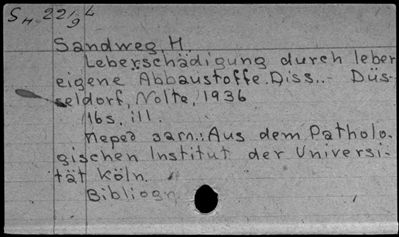 Sн 22/9 4
Sandweg, H.
Leberschädigung durch leber
eigene Abbaustoffe. Diss..- Düs-
seldorf, Nolte, 1936
16s, ill.
Перед загл.: Aus dem Patholo-
gischen Institut der Universi-
tät Köln.
Bibliogr.